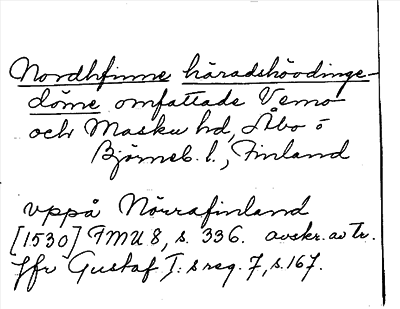 Nordhfinne häradshövdinge-
döme omfattade Vemo
och Masku hd, Åbo o
Björneb. l., Finland
vppå Nörrafinland
[1530] FMU 8, s. 336. avskr. av Tr.
Jfr Gustaf I:s reg. 7, s. 167.